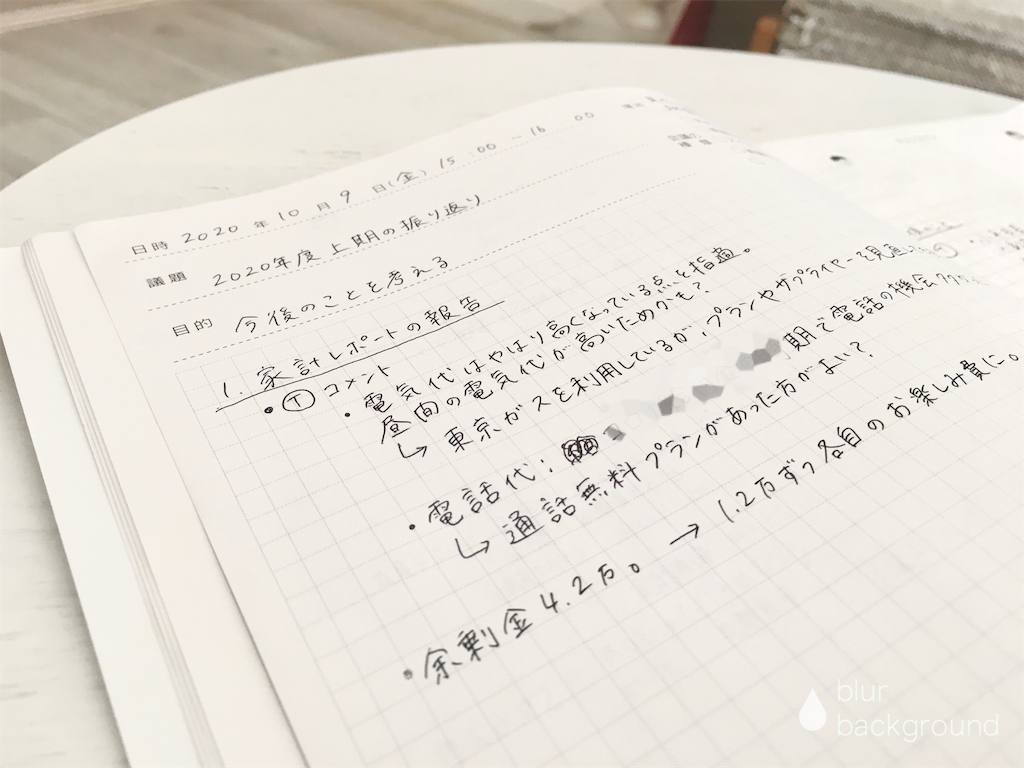 日時 2020 年 10 月 9 日(金) 15:00 ~ 16:00
議題 2020年度上期の振り返り
目的 今後のことを考える
1. 家計レポートの報告
・Ⓣ コメント
・電気代はやはり高くなっている点を指摘。
昼間の電気代が高いためかも?
↳ 東京ガスを利用しているが、プランやサプライヤーを見直し
・電話代: 期で電話の機会
↳ 通話無料プランがあった方がよい?
・余剰金4.2万。 → 1.2万ずつ各自のお楽しみ費に。
blur
background